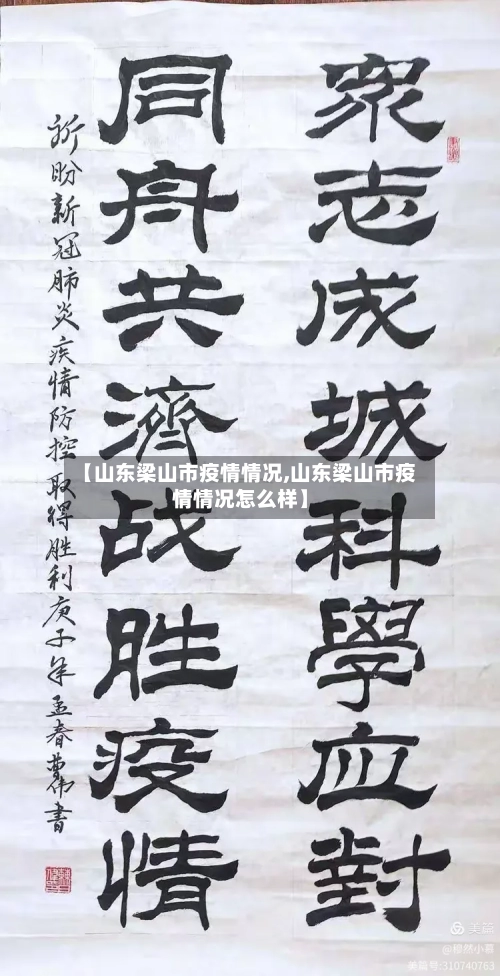 眾志成城科學应對
同舟共濟战胜疫情
祈盼新冠肺炎疾情防控取得胜利庚子年孟春曹伟書
【山东梁山市疫情情况,山东梁山市疫
情情况怎么样】
美篇
@穆然小慕
美篇号:310740763